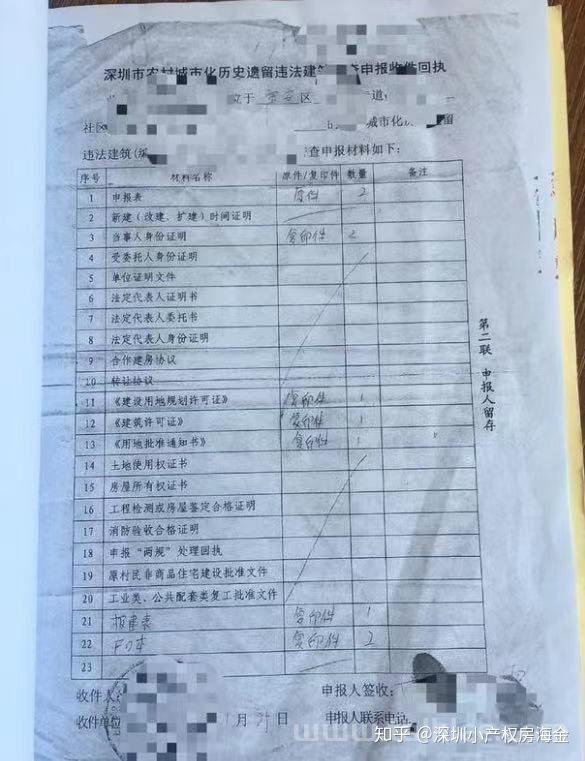 深圳市农村城市化历史遗留违法建筑 查申报收件回执
位于 宝安区 道
社区 城市化 留
违法建筑(综 查申报材料如下:
序号 材料名称 原件/复印件 数量 备注
1 申报表 原件 2
2 新建(改建、扩建)时间证明
3 当事人身份证明 复印件 2
4 受委托人身份证明
5 单位证明文件
6 法定代表人证明书
7 法定代表人委托书
8 法定代表人身份证明
9 合作建房协议
10 转让协议
11 《建设用地规划许可证》 复印件 1
12 《建筑许可证》 复印件 1
13 《用地批准通知书》 复印件 1
14 土地使用权证书
15 房屋所有权证书
16 工程检测或房屋鉴定合格证明
17 消防验收合格证明
18 申报“两规”处理回执
19 原村民非商品住宅建设批准文件
20 工业类、公共配套类复工批准文件
21 报建表 复印件 1
22 户口本 复印件 2
23
收件人 申报人签收:
收件单位 1月21日 申报人联系电话
第二联 申报人留存
知乎 @深圳小产权房海金